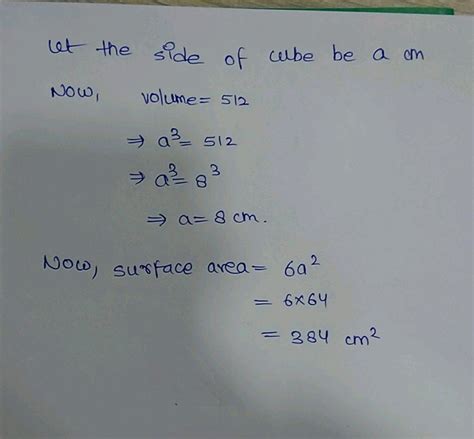 Let the side of cube be a cm
Now, volume = 512
⇒ a³ = 512
⇒ a³ = 8³
⇒ a = 8 cm.
Now, surface area = 6a²
= 6×64
= 384 cm²